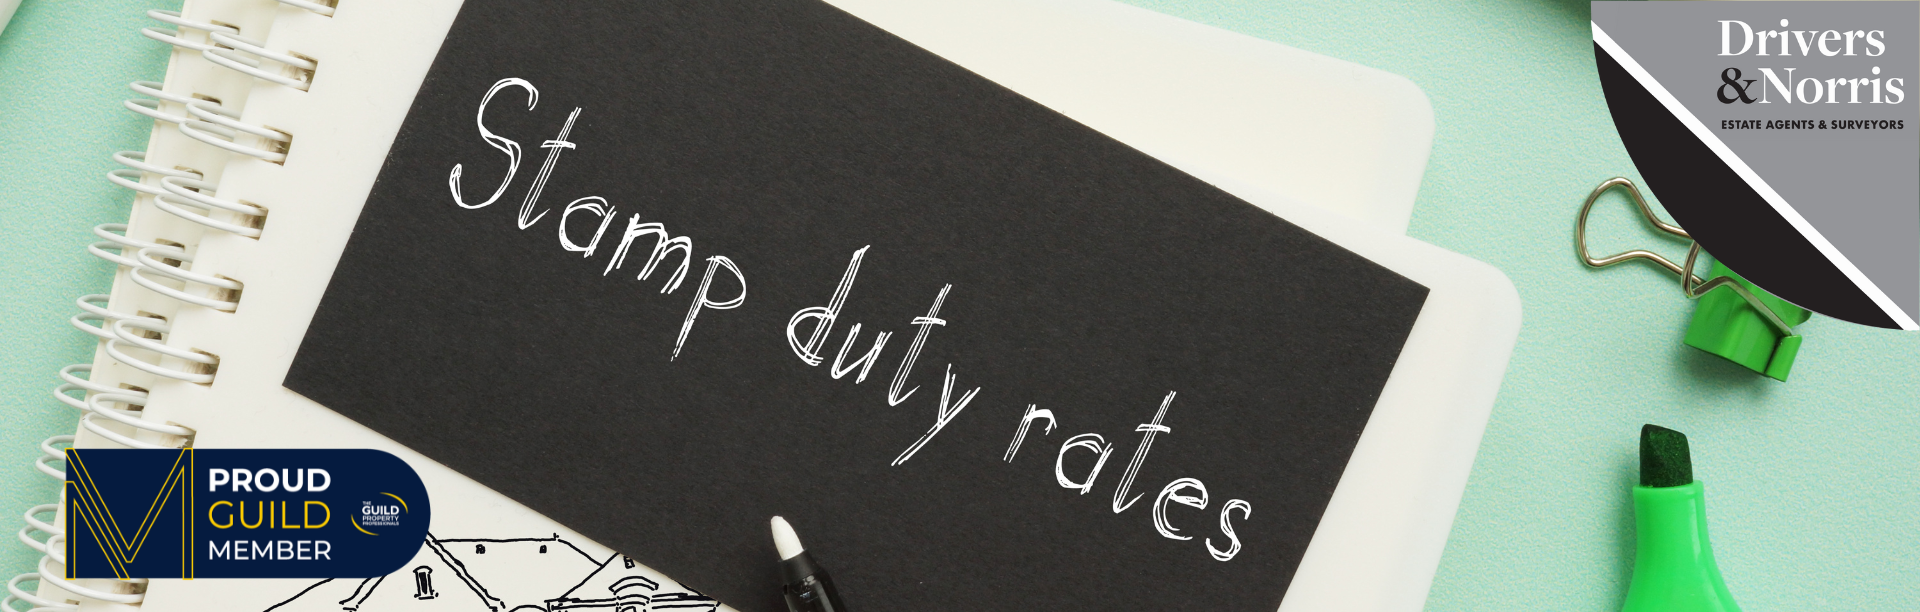 Stamp duty rates
Drivers
&Norris
ESTATE AGENTS & SURVEYORS
PROUD
GUILD
MEMBER
THE
GUILD
PROPERTY
PROFESSIONALS